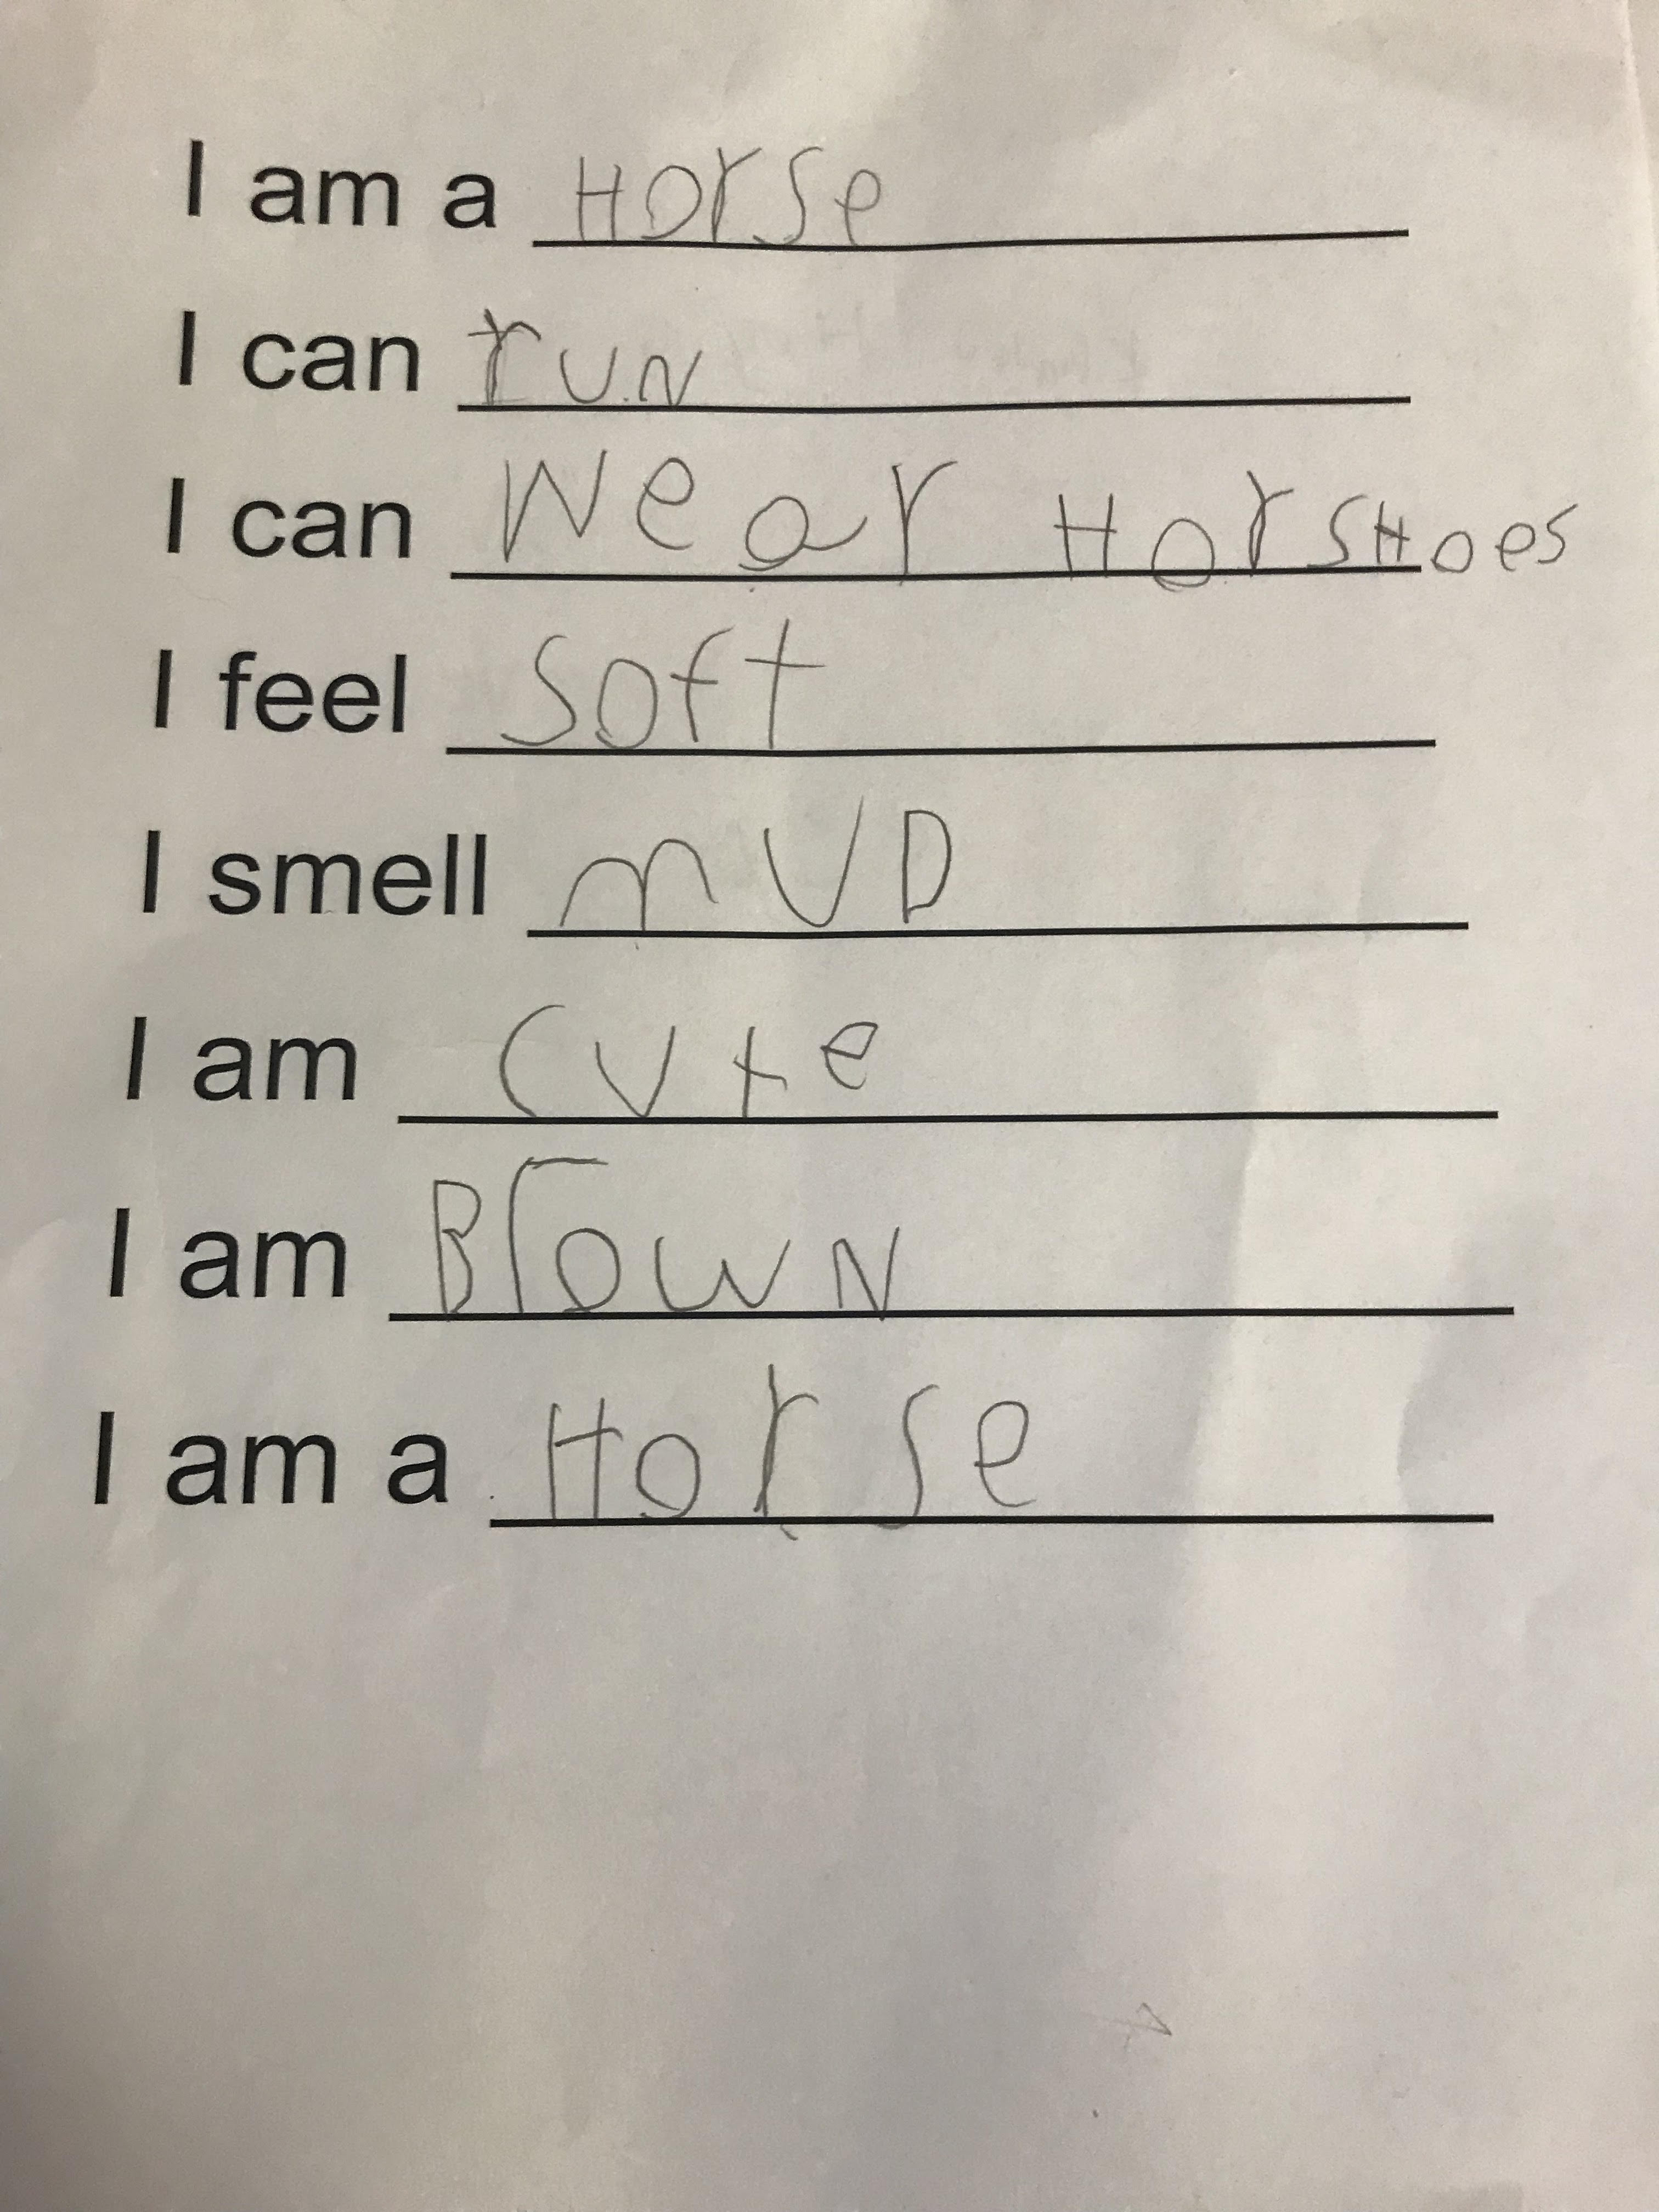 I am a Horse
I can run
I can Wear HorsHoes
I feel Soft
I smell mUD
I am cute
I am BrowN
I am a Horse